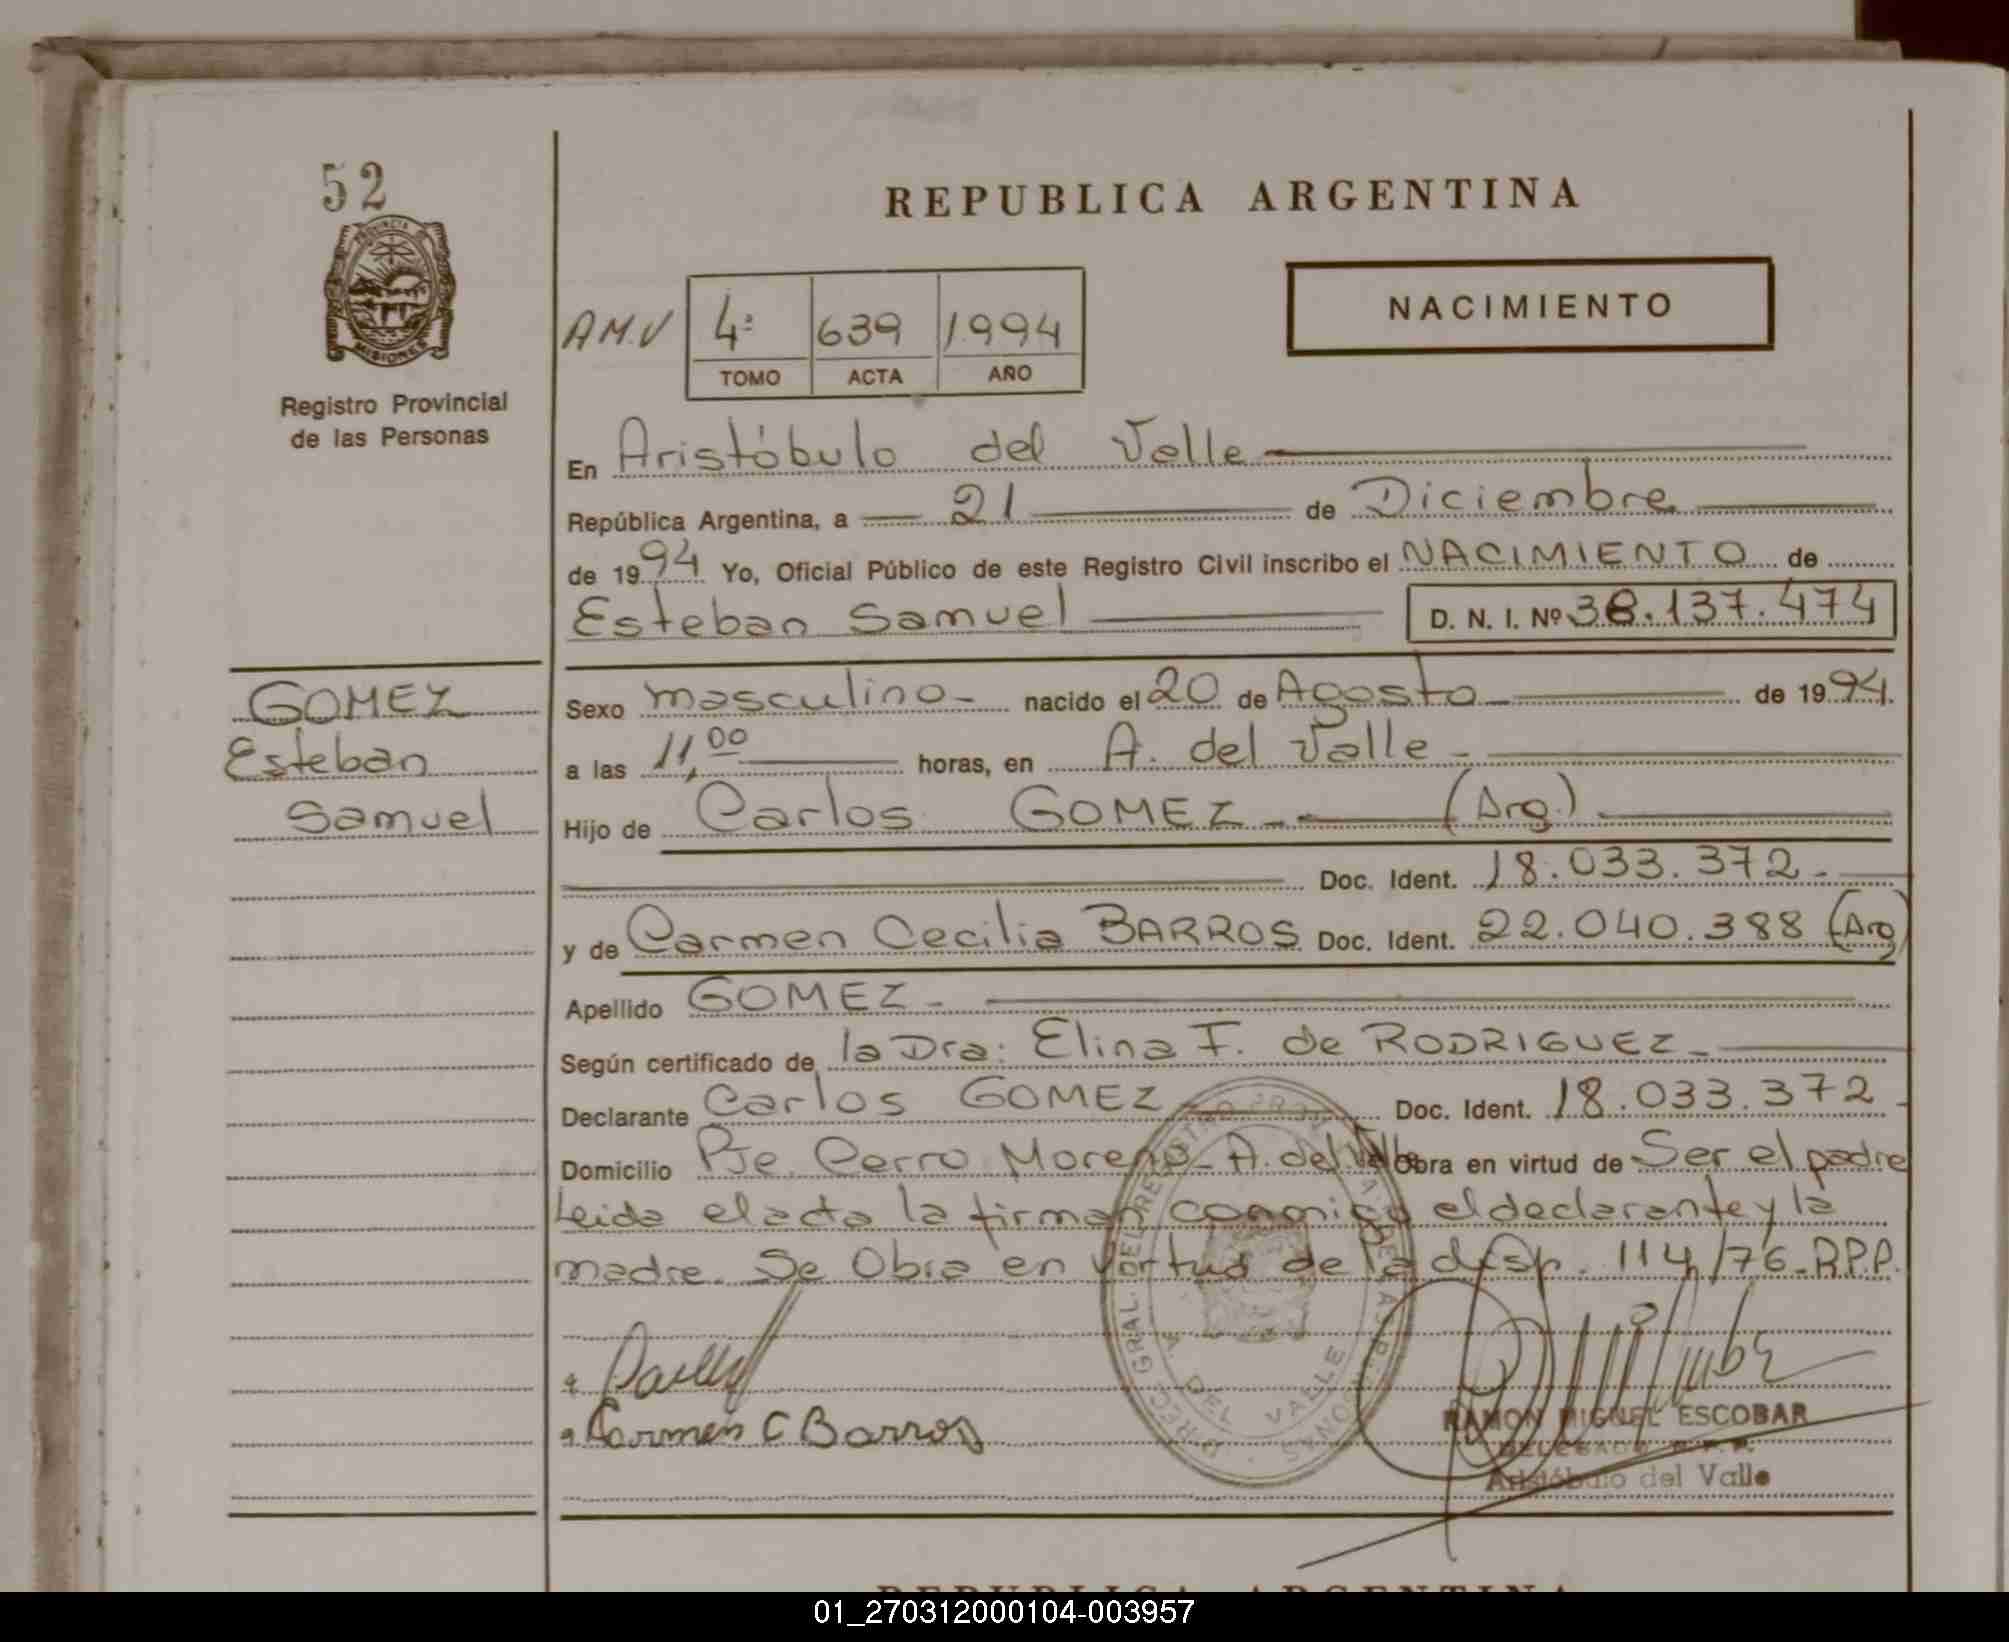 52
PROVINCIA DE
MISIONES
Registro Provincial
de las Personas
REPUBLICA ARGENTINA
NACIMIENTO
A.M.V 4º 639 1.994
TOMO ACTA AÑO
En Aristóbulo del Valle
República Argentina, a 21 de Diciembre
de 1994 Yo, Oficial Público de este Registro Civil inscribo el NACIMIENTO de
Esteban Samuel D. N. I. Nº 38.137.474
GOMEZ
Esteban
Samuel
Sexo masculino- nacido el 20 de Agosto de 1994.
a las 11,00 horas, en A. del Valle-
Hijo de Carlos GOMEZ- (Arg.)
Doc. Ident. 18.033.372-
y de Carmen Cecilia BARROS Doc. Ident. 22.040.388 (Arg)
Apellido GOMEZ-
Según certificado de la Dra: Elina F. de RODRIGUEZ-
Declarante Carlos GOMEZ Doc. Ident. 18.033.372-
Domicilio Pje. Cerro Moreno- A. del Valle Obra en virtud de Ser el padre
Leida el acta la firman conmigo el declarante y la
madre. Se Obra en virtud de la disp. 114/76-R.P.P.
Carmen C Barros
DIREC. GRAL. DEL REGISTRO PROV. DE LAS PERSONAS
A. DEL VALLE
RAMON MIGUEL ESCOBAR
DELEGADO R.P.P.
Aristóbulo del Valle
REPUBLICA ARGENTINA
01_270312000104-003957